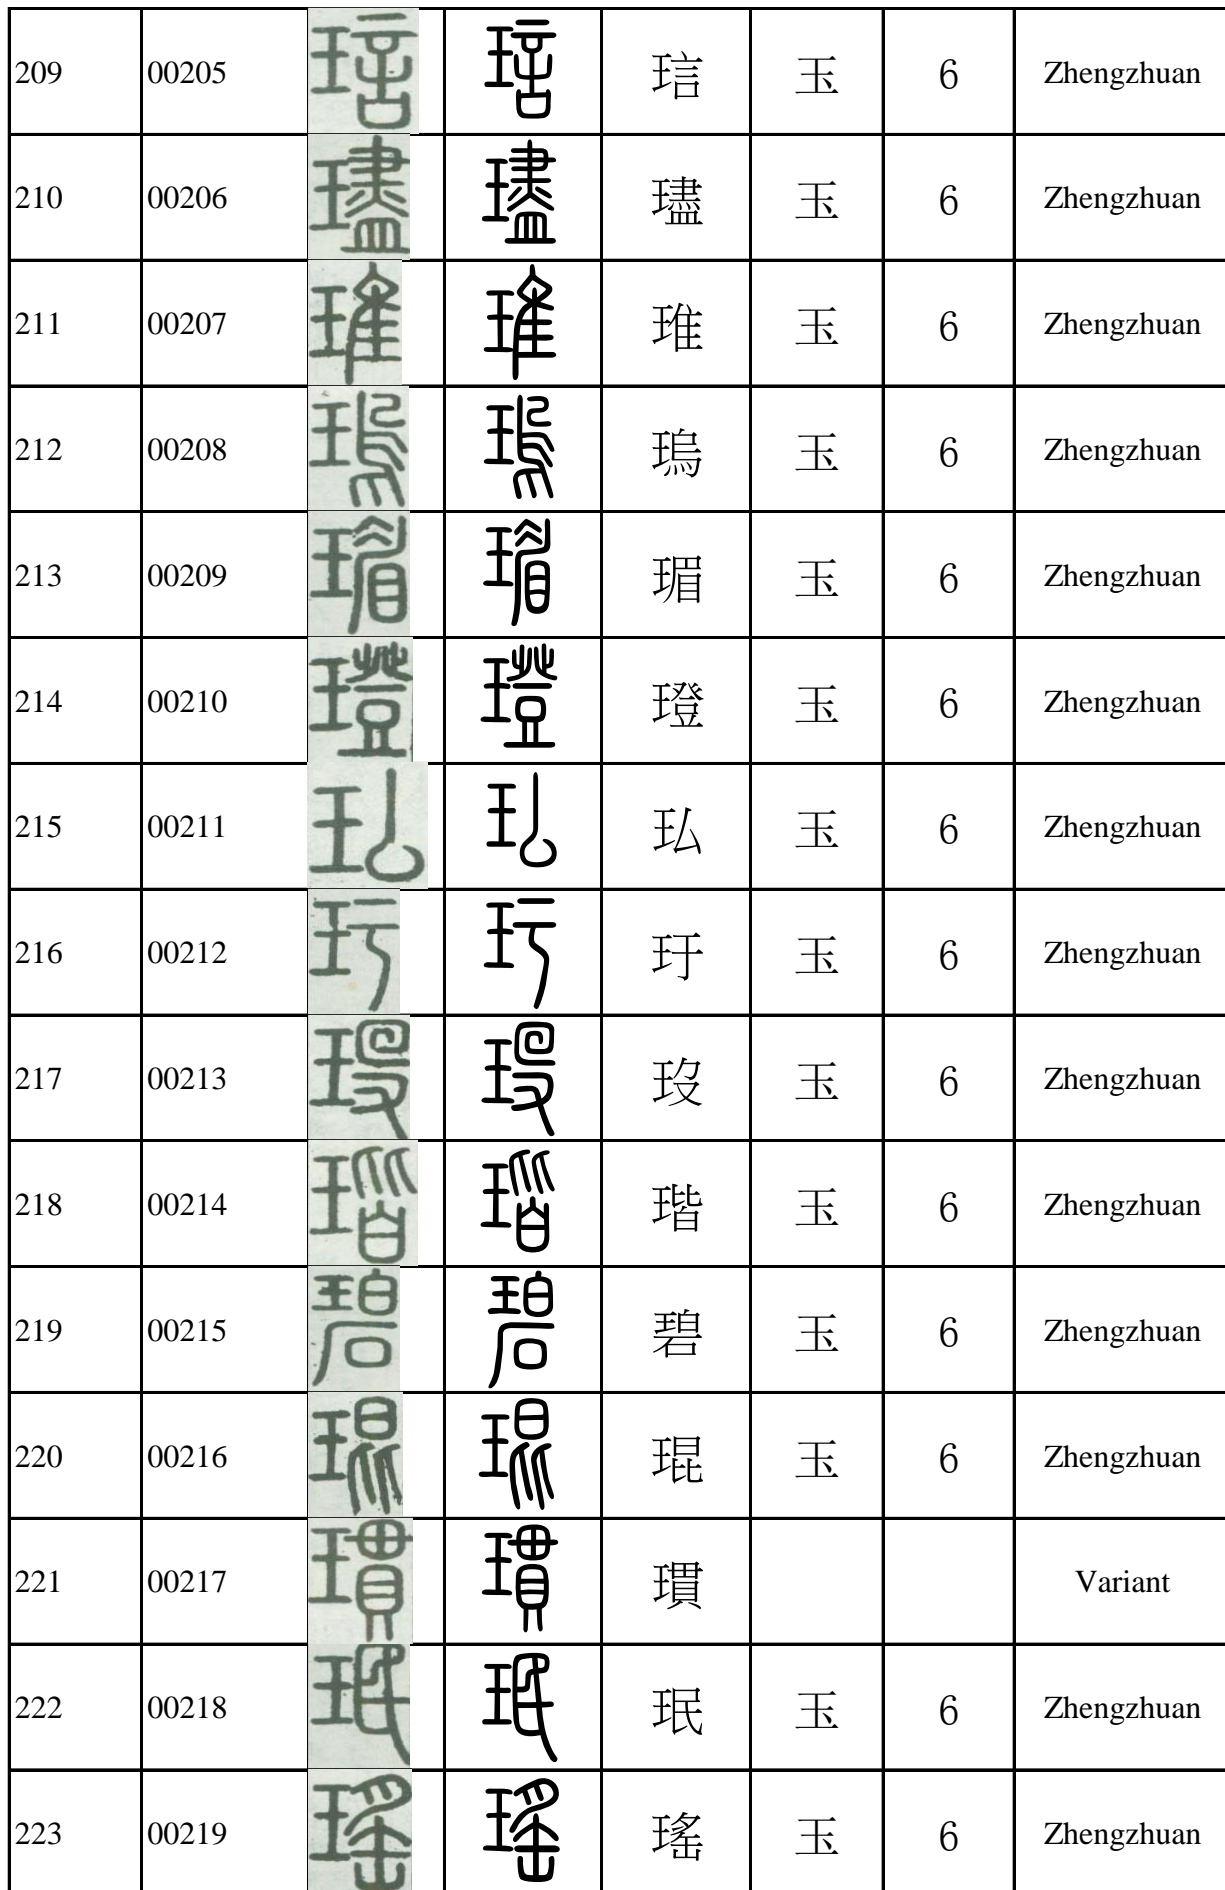 209 00205 琂 玉 6 Zhengzhuan
210 00206 璶 玉 6 Zhengzhuan
211 00207 琟 玉 6 Zhengzhuan
212 00208 瑦 玉 6 Zhengzhuan
213 00209 瑂 玉 6 Zhengzhuan
214 00210 璒 玉 6 Zhengzhuan
215 00211 玜 玉 6 Zhengzhuan
216 00212 玗 玉 6 Zhengzhuan
217 00213 玟 玉 6 Zhengzhuan
218 00214 瑎 玉 6 Zhengzhuan
219 00215 碧 玉 6 Zhengzhuan
220 00216 琨 玉 6 Zhengzhuan
221 00217 瑻 Variant
222 00218 珉 玉 6 Zhengzhuan
223 00219 瑤 玉 6 Zhengzhuan